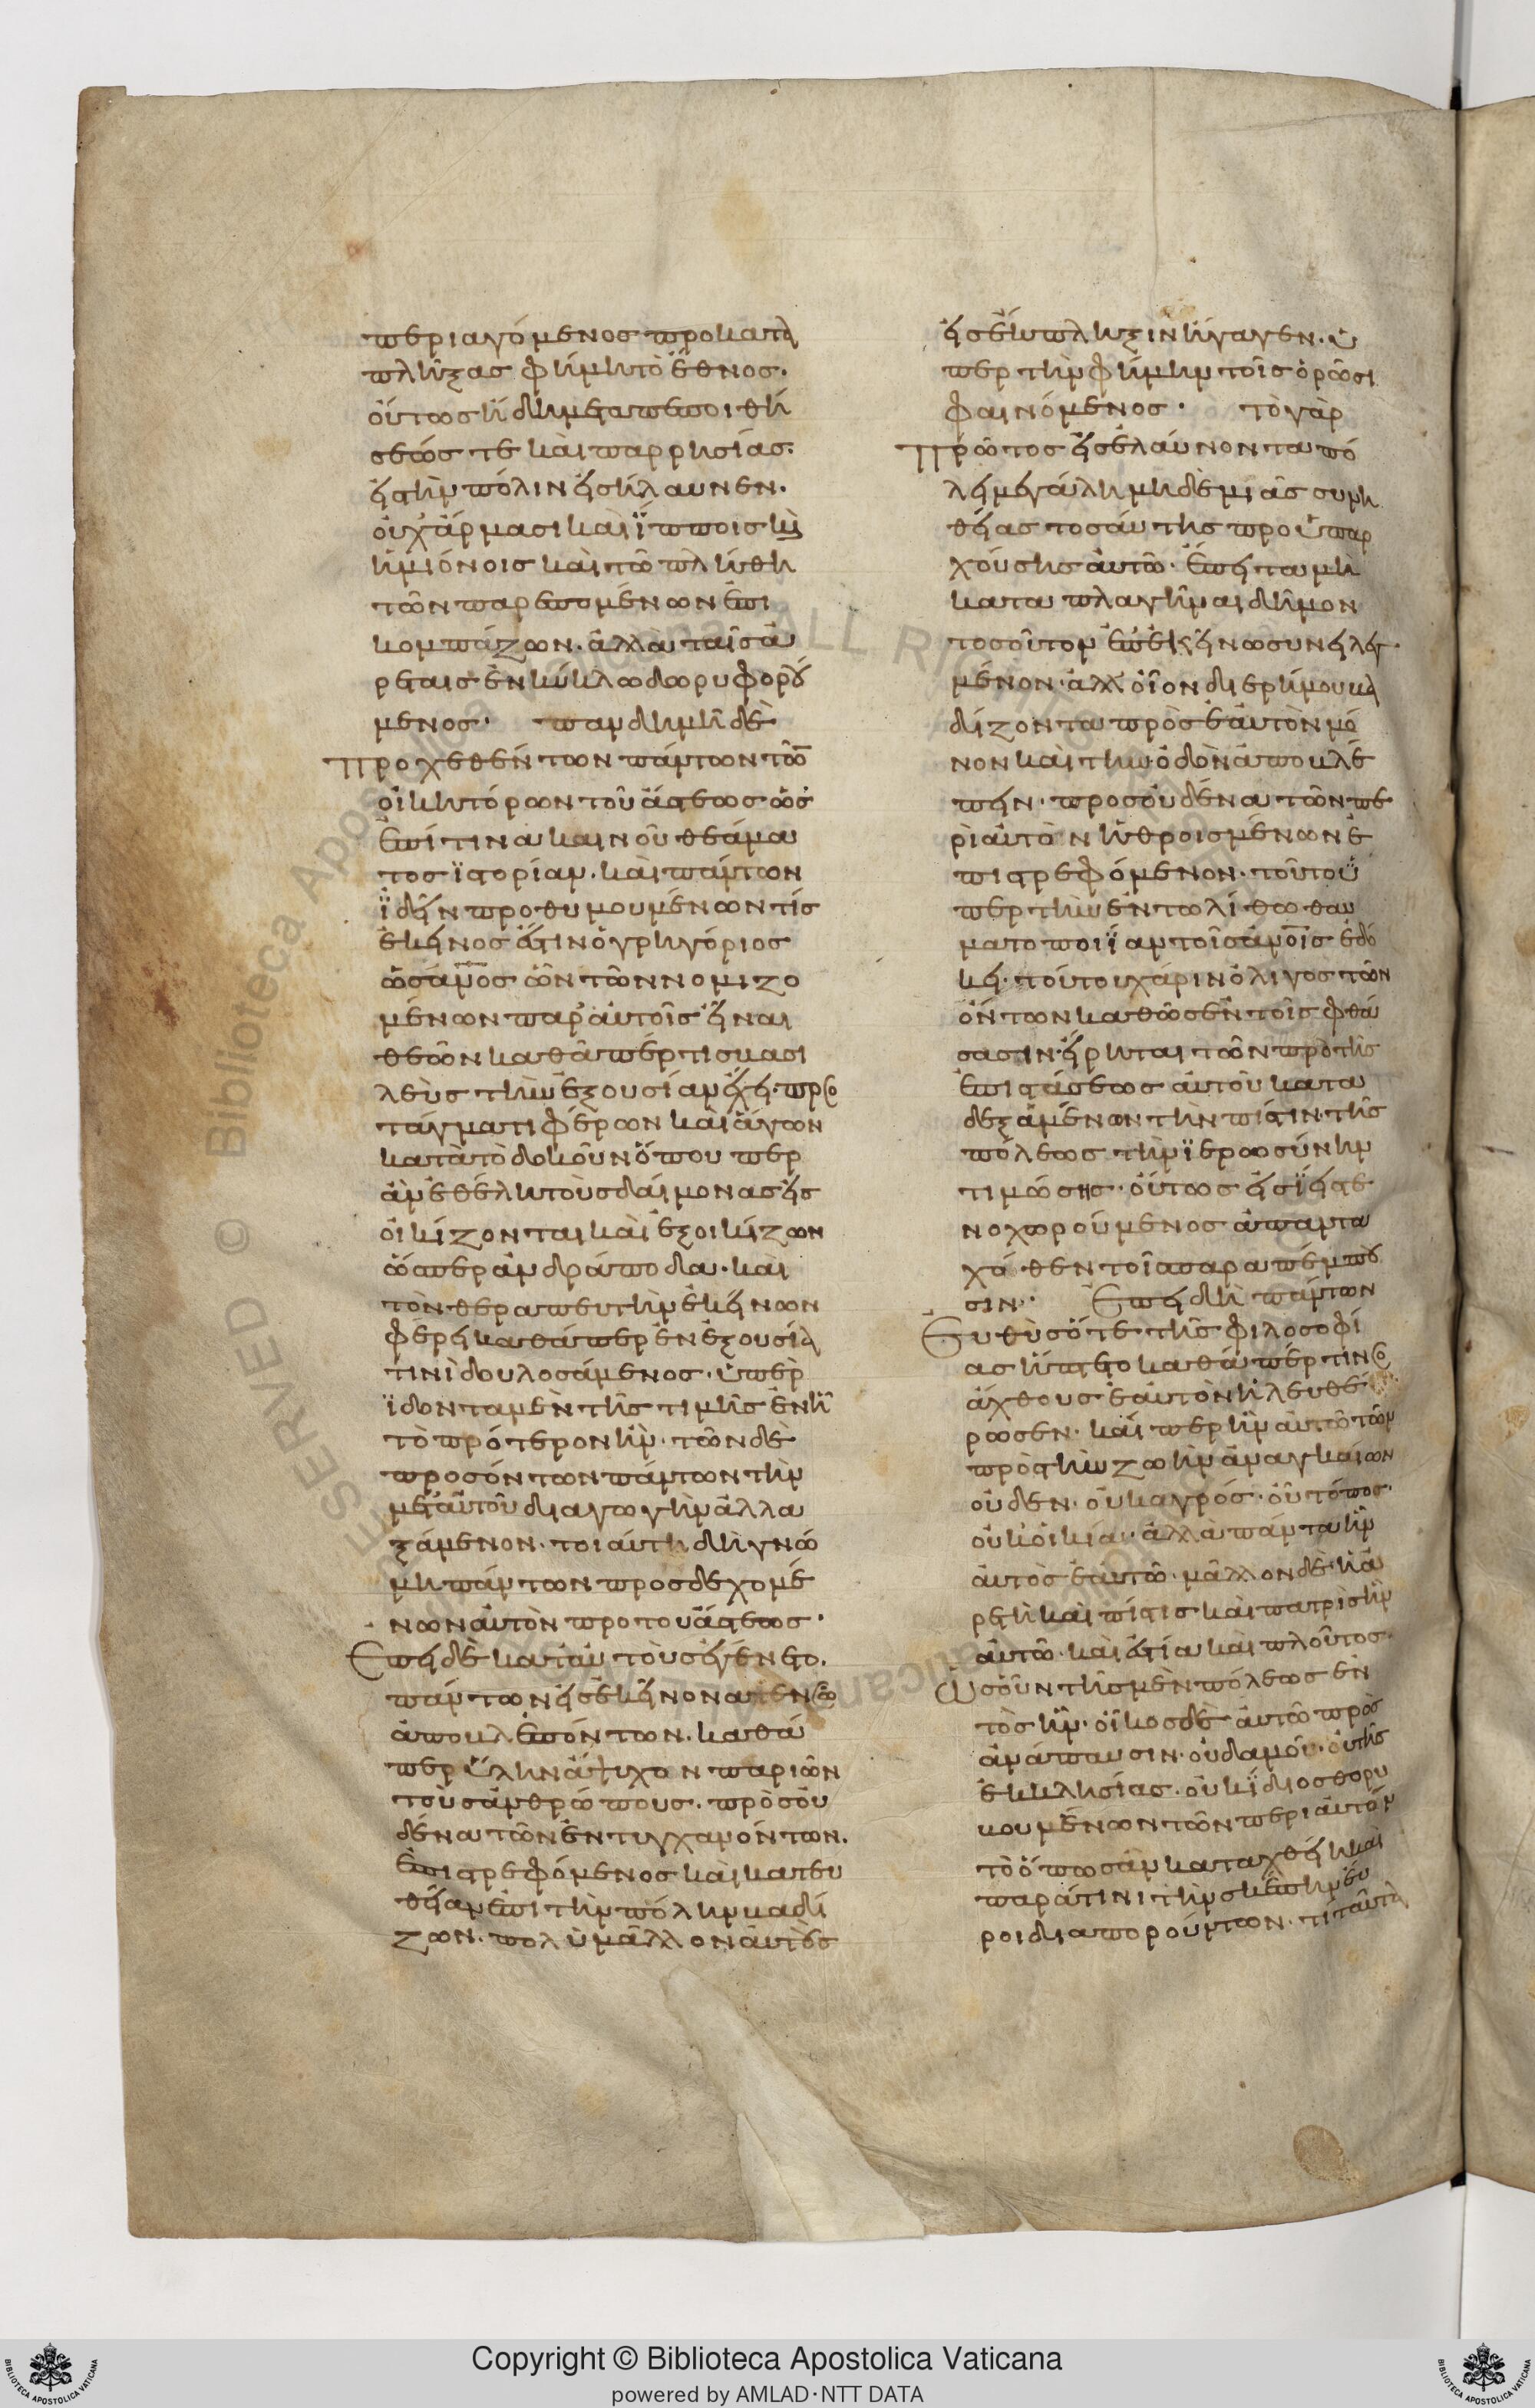 περιαγόμενος προκατα
πλήξας φήμη τὸ ἔθνος·
οὕτως ἤδη μετα πεποιθή
σεώς τε καὶ παρρησίας·
εἰς τὴν πόλιν εἰσήλαυνεν·
οὐχ ἅρμασι καὶ ἵπποις καὶ
ἡμιόνοις καὶ τῶ πλήθη
τῶν παρεπομένων ἐπι
κομπάζων· ἀλλὰ ταῖς ἀ
ρεταις ἐν κύκλω δωρυφορού
μενος· πανδημὴ δὲ
Προχεθέντων πάντων τῶν
οἰκητόρων τοῦ ἄστεως ὡς
ἐπί τινα καινοῦ θεάμα
τος ἱστορίαν· καὶ πάντων
ἰδεῖν προθυμουμένων τίς
ἐκεῖνος ἐστιν ὁ γρηγόριος
ὡς ἄνος ὢν τῶν νομιζο
μένων παρ' αὐτοῖς εἶναι
θεῶν καθάπέρ τις βασι
λεὺς τὴν ἐξουσίαν ἔχει· προσ
τάγματι φέρων καὶ ἄγων
κατὰ τὸ δοκοῦν ὅπου περ
ἀν ἐθέλη τοὺς δαίμονας εἰσ
οικίζονται καὶ ἐξοικίζων
ὥσπερ ἀνδράποδα· καὶ
τὸν θεραπευτὴν ἐκείνων
φέρει καθάπερ ἐν ἐξουσία
τινὶ δουλοσάμενος· ὑπερ
ϊδοντα μὲν τῆς τιμῆς ἐν ἧ
τὸ πρότερον ἦν· τῶν δὲ
προσόντων πάντων τὴν
μετ' αὐτοῦ διαγωγὴν ἀλλα
ξάμενον· τοιαύτη δὴ γνώ
μη πάντων προσδεχομέ
νων αὐτὸν προ του ἄστεως·
Ἐπειδὲ κατ' αὐτοὺς ἐγένετο·
πάντων εἰς ἐκεῖνον ἀτενῶς
ἀποβλεπόντων· καθά
περ ὕλην ἄψυχον παριῶν
τοὺς ἀνθρώπους· πρὸς οὐ
δένα τῶν ἐντυγχανόντων·
ἐπιστρεφόμενος καὶ κατευ
θεῖαν ἐπι τὴν πόλην βαδί
ζων· πολὺ μᾶλλον αὐτοὺς
εἰς ἔκπληξιν ἤγαγεν· ὑ
περ τὴν φήμην τοῖς ὁρῶσι
φαινόμενος· τὸ γὰρ
Πρώτος εἰσελαύνοντα πό
λει μεγάλη μηδὲ μιᾶς συνη
θείας τοσαύτης προϋπαρ
χούσης αὐτῶ· ἔπειτα μὴ
καταπλαγῆναι δῆμον
τοσοῦτον ἐπ' ἐκείνω συνειλεγ
μένον· ἀλλ' οἷον δι' ερήμου βα
δίζοντα πρὸς ἑαυτὸν μό
νον καὶ τὴν ὁδὸν ἀποβλέ
πειν· προς οὐδένα τῶν πε
ρὶ αὐτὸν ἠθροισμένων ἐ
πιστρεφόμενον· τοῦτο ὑ
περ τὴν ἐν τω λίθω θαυ
ματοποιΐαν τοῖς ἄνοις ἐδό
κει· τούτου χάριν ὀλίγος τῶν
ὄντων καθὼς ἐν τοῖς φθά
σασιν εἴρηται τῶν πρὸ τῆς
ἐπιστάσεως αὐτοῦ κατα
δεξάμένων τὴν πίστιν· τῆς
πόλεως τὴν ἱερωσύνην
τιμώσης· οὕτως εἰσῄει στε
νοχωρούμενος ἁπαντα
χό·θεν τοῖς παραπέμπου
σιν· Ἐπειδὴ πάντων
Ευθὺς ὅτε τῆς φιλοσοφί
ας ἥπτετο καθάπέρ τινος
ἄχθους ἑαυτὸν ἠλευθέ
ρωσεν· καίπερ ἦν αὐτῶ τῶν
πρὸς τὴν ζωὴν ἀναγκαίων
οὐδεν· οὐκ αγρός· οὐ τόπος·
οὐκ οἰκία· ἀλλὰ πάντα ἦν
αὐτὸς ἑαυτῶ· μᾶλλον δὲ ἡ ἀ
ρετὴ καὶ πίστις καὶ πατρὶς ἦν
αὐτῶ· καὶ ἑστία καὶ πλοῦτος·
Ὡς οὖν τῆς μὲν πόλεως ἐν
τὸς ἦν· οἶκος δὲ αὐτῶ πρὸς
ἀνάπαυσιν· οὐδαμοῦ· οὐ τῆς
ἐκκλησίας· οὐκ ΐδιος θορυ
βουμένων τῶν περι αὐτόν
τὸ ὅπως ἂν καταχθείη καὶ
παρά τινι τὴν σκέπην εὕ
ροι διαπορούντων· τί ταῦτα